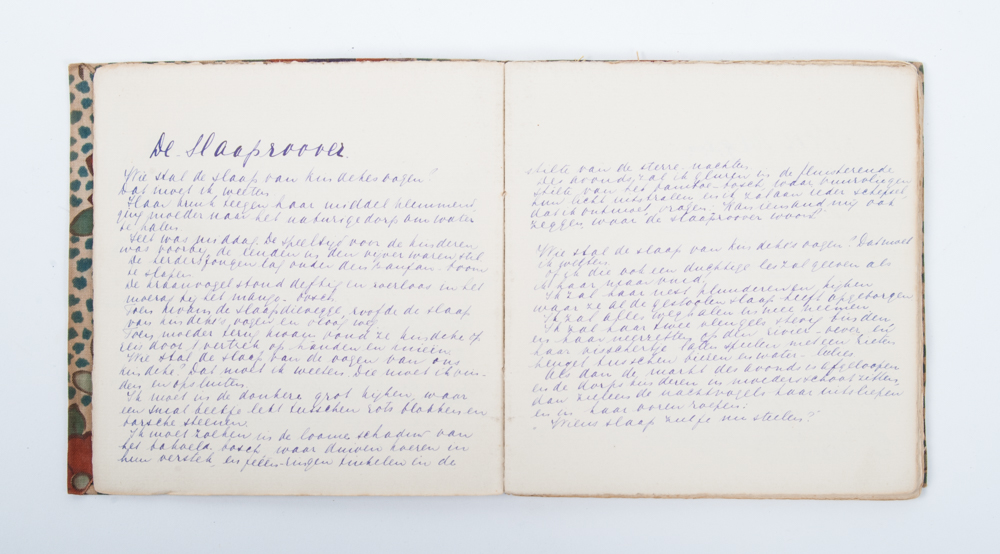 De Slaaproover.
Wie stal de slaap van kindekes oogen?
Dat moet ik weeten.
Haar kruik teegen haar middel klemmend,
ging moeder naar het naburige dorp om water
te halen.
Het was middag. De speeltijd voor de kinderen
was voorbij, de eenden in den vijver waren stil.
De herdersjongen lag onder den banyan-boom
te slapen.
De kraanvogel stond deftig en roerloos in het
moeras bij het mango-bosch.
Toen kwam de slaapdievegge, roofde de slaap
van kindeke's oogen en vloog weg.
Toen moeder terug kwam vond ze kindeke op
reis door 't vertrek op handen en knieën.
Wie stal de slaap van de oogen van ons
kindeke? Dat moet ik weeten. Die moet ik vin-
den en opsluiten.
Ik moet in de donkere grot kijken, waar
een smal beekje lekt tusschen rots blokken en
barsche steenen.
Ik moet zoeken in de loome schaduw van
het bakoela bosch, waar duiven koeren in
hun verstek, en feeën-ringen tinkelen in de
stilte van de sterre-nachten.
Des avonds zal ik gluren in de fluisterende
stilte van het bamboe-bosch, waar vuurvliegen
hun licht uitstralen en ik zal aan ieder schepsel
dat ik ontmoet vragen: "Kan iemand mij ook
zeggen waar de slaaproover woont?"
Wie stal de slaap van kindeke's oogen? Dat moet
ik weeten.
Of ik die ook een duchtige les zal geeven als
ik haar maar vind.
Ik zal haar nest plunderen en kijken
waar ze al de gestoolen slaap heeft opgeborgen
Ik zal alles weghalen en mee neemen.
Ik zal haar twee vleugels stevig binden
en haar neerzetten op den rivier-oever en
haar visschertje laten speelen met een rieten
hengel tusschen biezen en water-lelies.
Als dan de markt des avonds is afgeloopen
en de dorps kinderen in moeders schoot zitten,
dan zullen de nachtvogels haar uitsliepen
en in haar ooren roepen:
"Wiens slaap zul je nu steelen?"